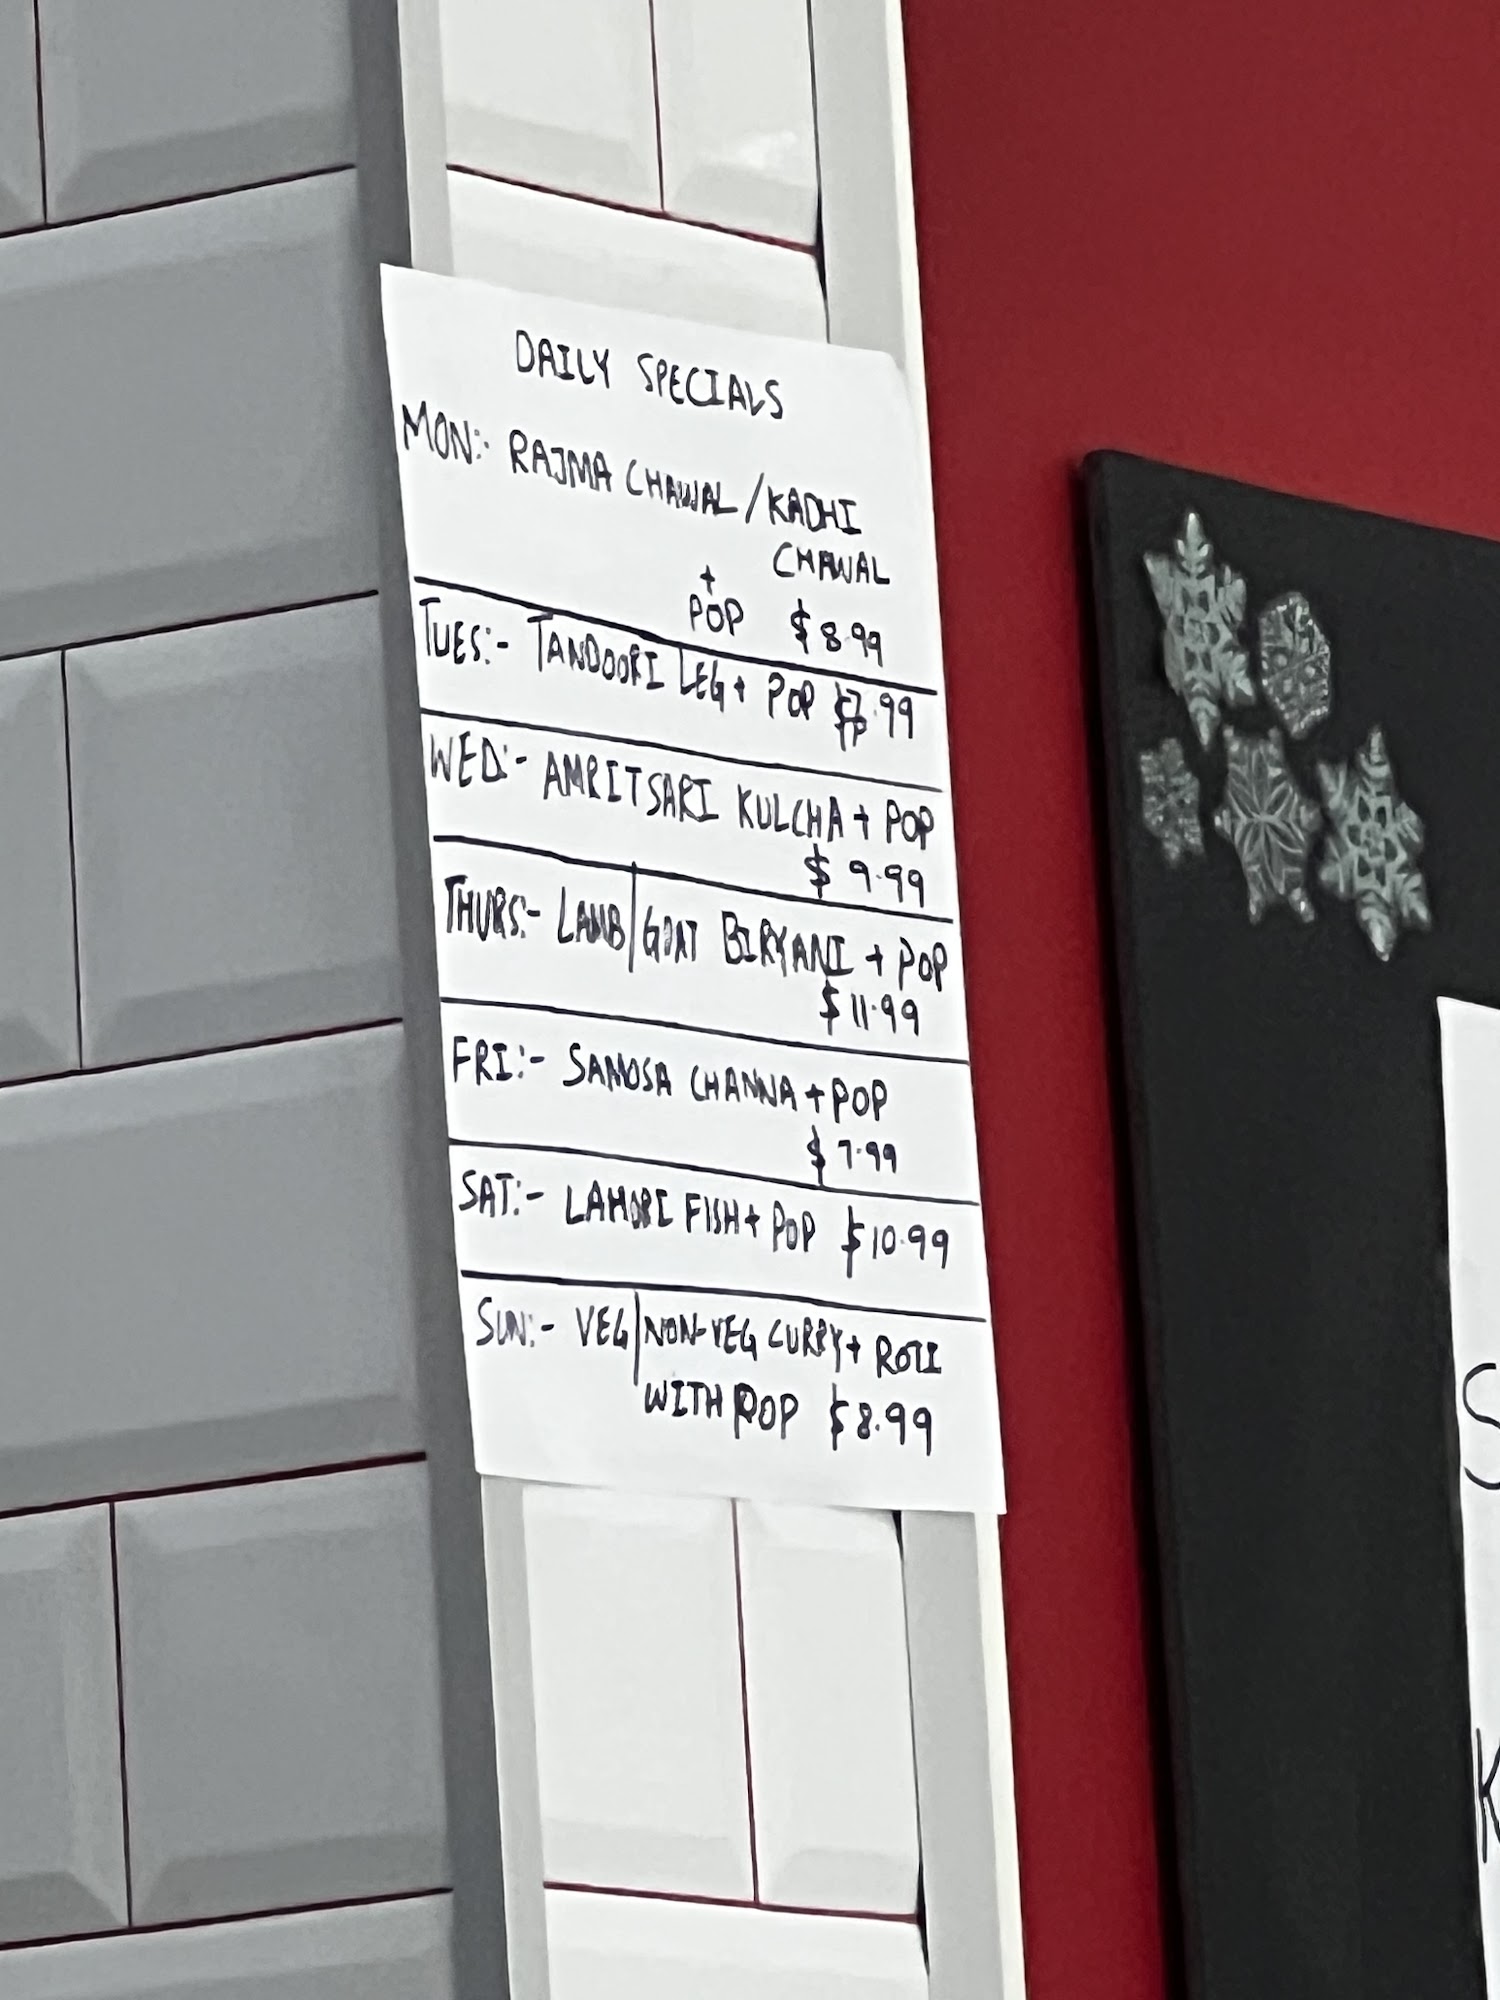 DAILY SPECIALS
MON:- RAJMA CHAWAL / KADHI
CHAWAL
+
POP $8.99
TUES:- TANDOORI LEG + POP $7.99
WED:- AMRITSARI KULCHA + POP
$9.99
THURS:- LAMB/GOAT BIRYANI + POP
$11.99
FRI:- SAMOSA CHANNA + POP
$7.99
SAT:- LAHORI FISH + POP $10.99
SUN:- VEG/NON-VEG CURRY + ROTI
WITH POP $8.99
S
K